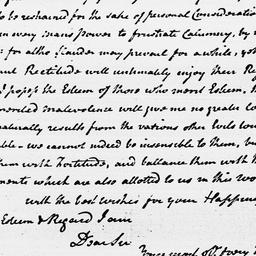 to be restrained for the sake of personal Consideration
in every mans power to frustrate Calumny, by
for altho' slander may prevail for a while, yet
and Rectitude will ultimately enjoy their
possess the Esteem of those who merit Esteem.
merited malevolence will give me no greater
naturally results from the various other Evils
we cannot indeed be insensible to them, but
them with Fortitude, and ballance them with
ments which are also allotted to us in this
with the best wishes for your Happin
Esteem & Regard I am
Dear Sir
Your most Ob.